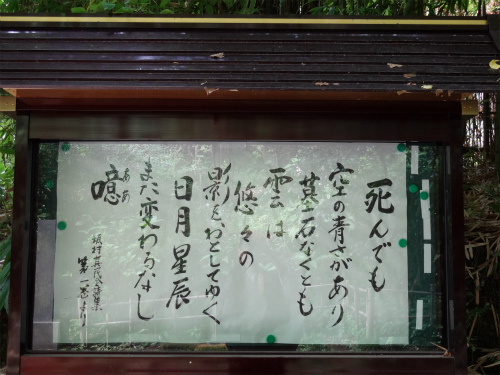 死んでも
空の青さがあり
墓石なくとも
雲は
悠々の
影をおとしてゆく
日月星辰
また変わるなし
噫
ああ
坂村真民全詩集
第一巻より